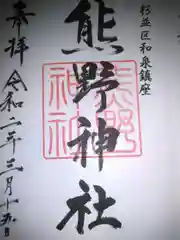 杉並区和泉鎮座
熊野神社
熊野
神社
奉拝
令和二年三月十五日